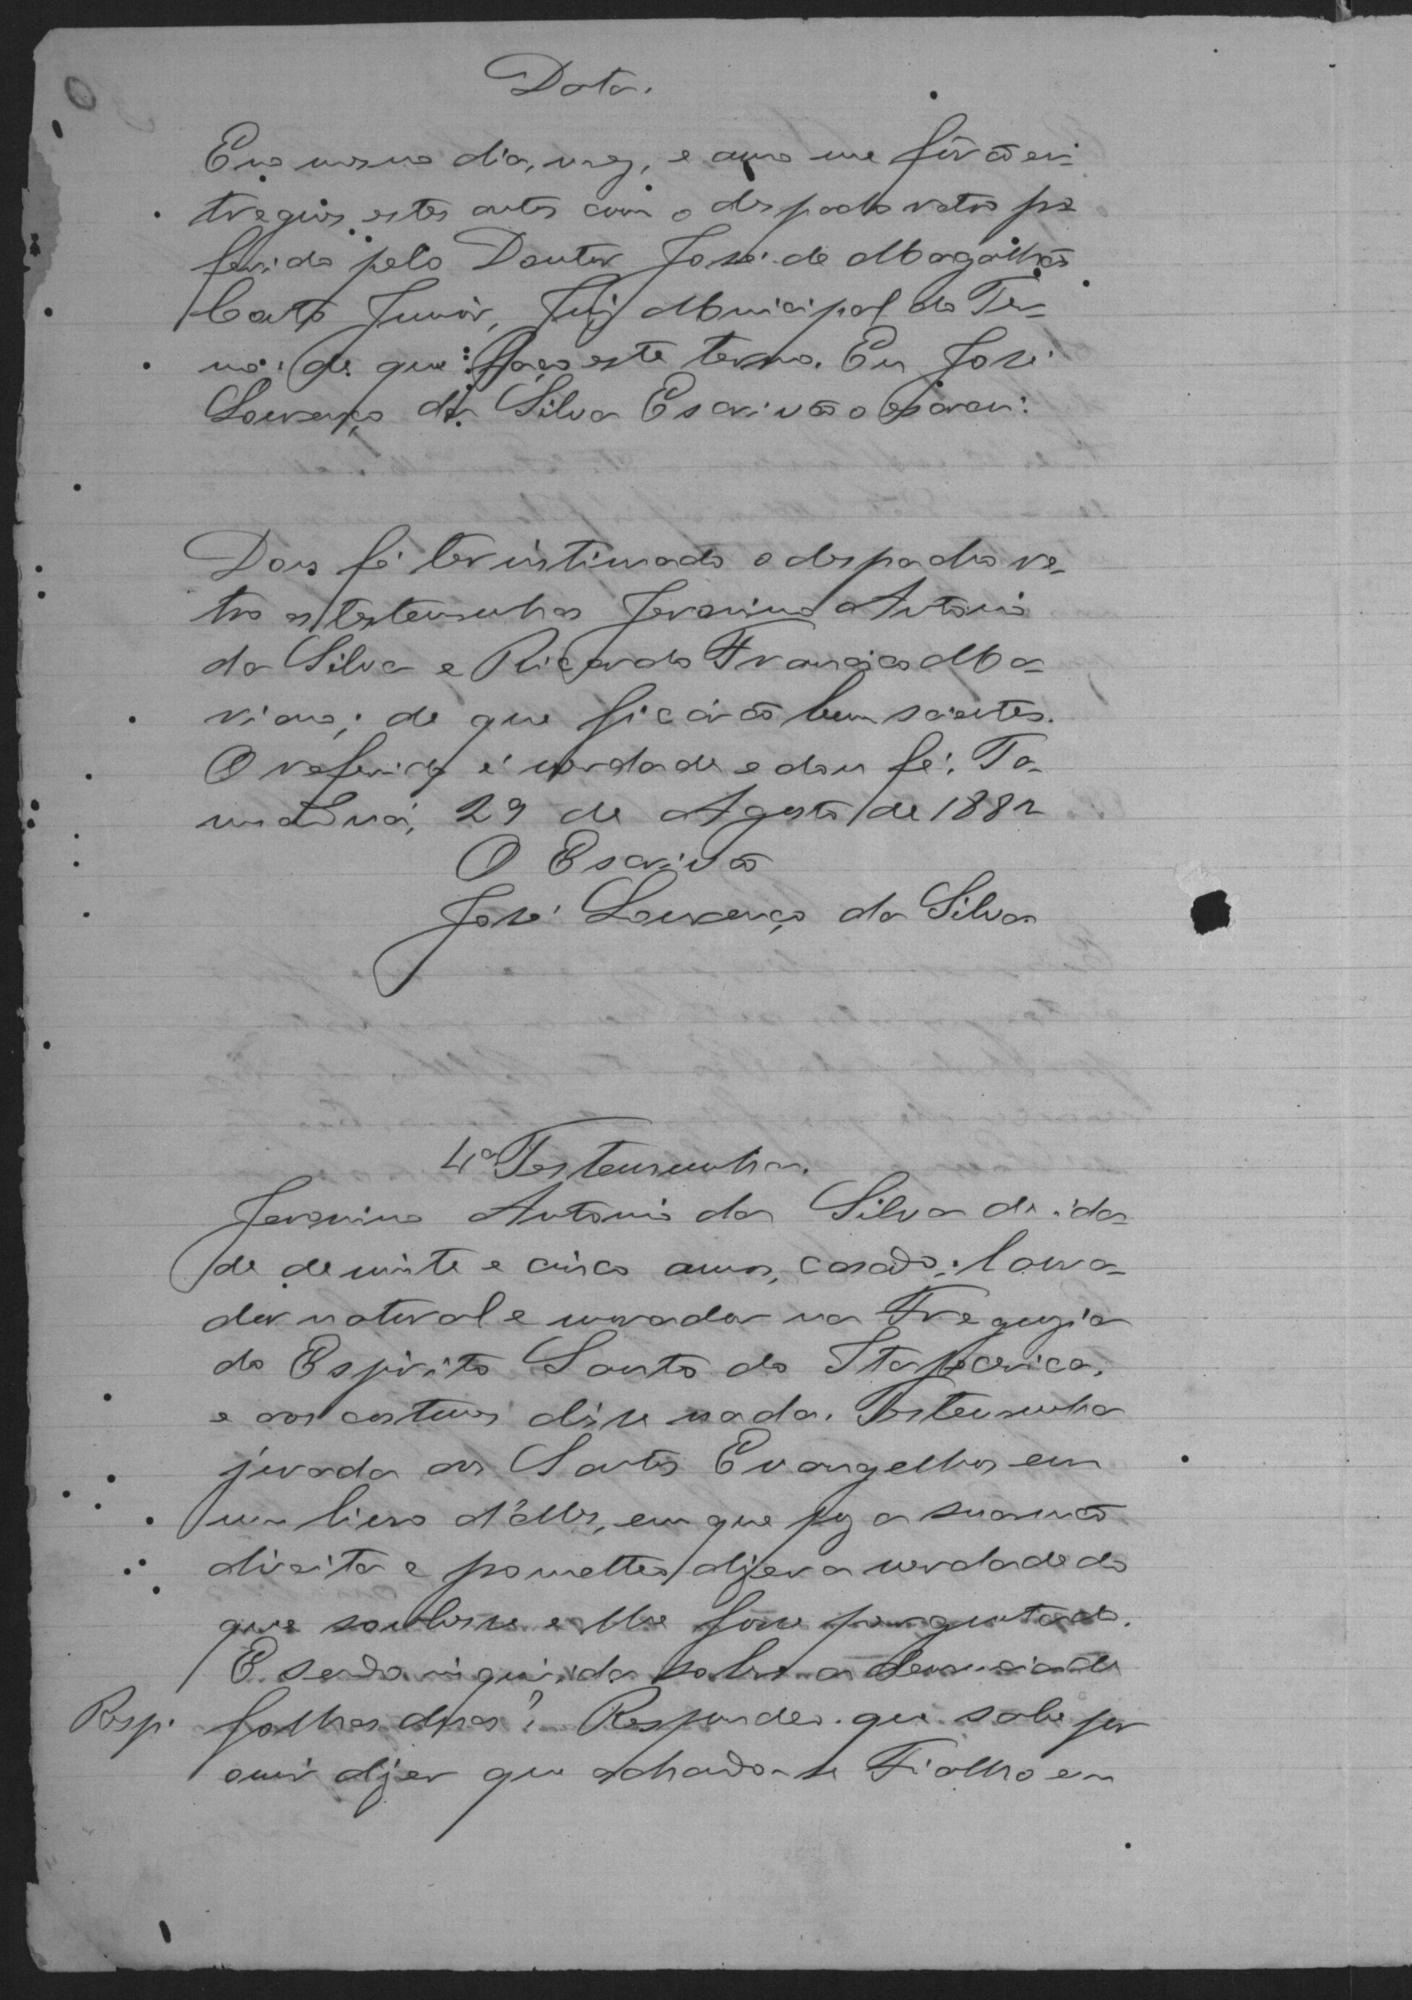 Data.
Em o mesmo dia, mez, e anno me fôrão en-
tregues estes autos com o despacho retro pro-
ferido pelo Doutor José de Magalhães
Couto Junior, Juiz Municipal do Ter-
mo: de que faço este termo. Eu José
Lourenço da Silva Escrivão o escrevi:
Dou fé ter intimado o despacho re-
tro as testemunhas Jeronimo Antonio
da Silva e Ricardo Francisco Ma-
riano; de que ficárão bem scientes.
O referido é verdade e dou fé. Ta-
manduá, 29 de Agosto de 1882
O Escrivão
José Lourenço da Silva
4ª Testemunha.
Jeronimo Antonio da Silva de ida-
de de vinte e cinco annos, casado, lavra-
dor natural e morador na Freguezia
do Espirito Santo do Itapecerica,
e aos costumes disse nada. Testemunha
jurada aos Santos Evangelhos em
um livro d'elles, em que poz a sua mão
direita e prometteo dizer a verdade do
que soubesse e lhe fosse perguntado.
E sendo inquirida sobre a denuncia de
Resp. folhas duas? Respondeo que sabe por
ouvir dizer que achando-se Fialho em